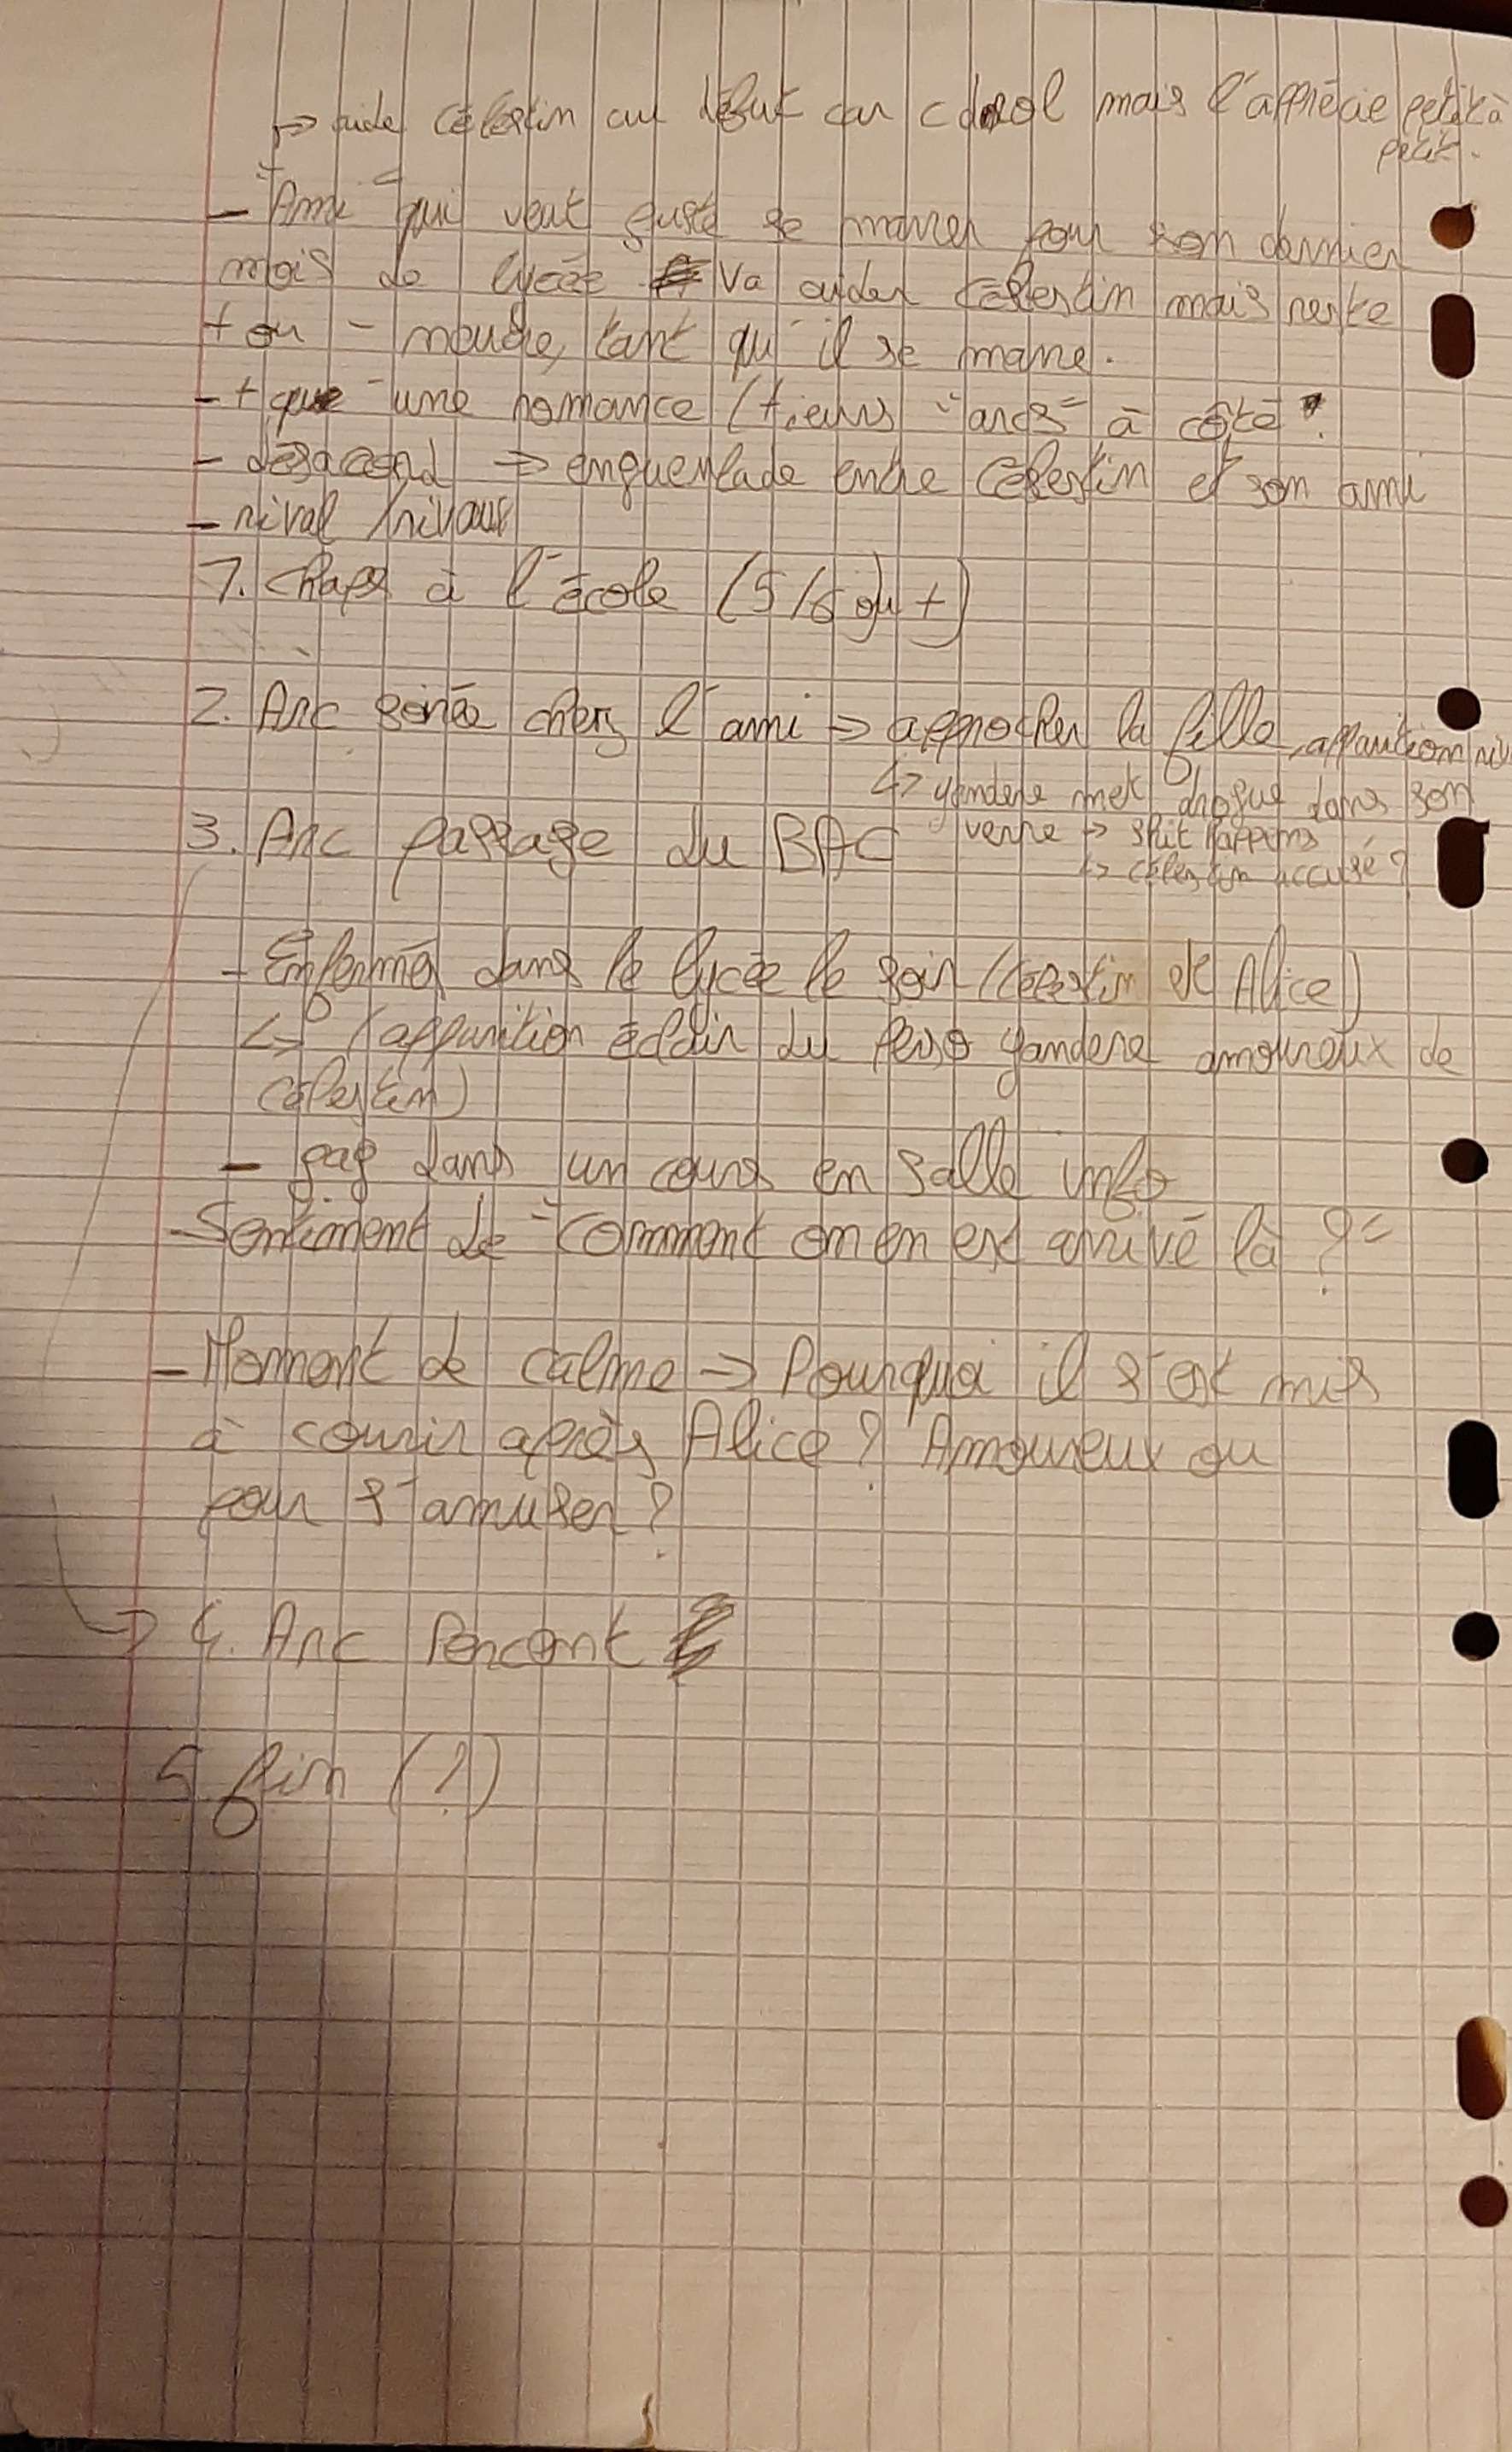 → aide Célestin au début car c drol mais l'apprécie petit à
petit.
- "Ami" qui veut juste se marrer pour son dernier
mois de lycée Va aider Célestin mais reste
+ ou - neutre, tant qu'il se marre.
- + que une romance (tiers "arcs" à côté ?
- désaccord → engueulade entre Célestin et son ami
- rival / rivaux
1. Chaps à l'école (5/6 ou +)
2. Arc soirée chez l'ami → approcher la fille, apparition riv
↳ yandere met drogue dans son
verre →
↳ Célestin accusé ?
3. Arc passage du BAC
- Enfermés dans le lycée le soir (Célestin et Alice)
↳ (apparition éclair du perso yandere amoureux de
Célestin)
- gag dans un cours en salle info
- Sentiment de "Comment on en est arrivé là ?"
- Moment de calme → Pourquoi il s'est mis
à courir après Alice ? Amoureux ou
pour s'amuser ?
→ 4. Arc
5 fin (?)